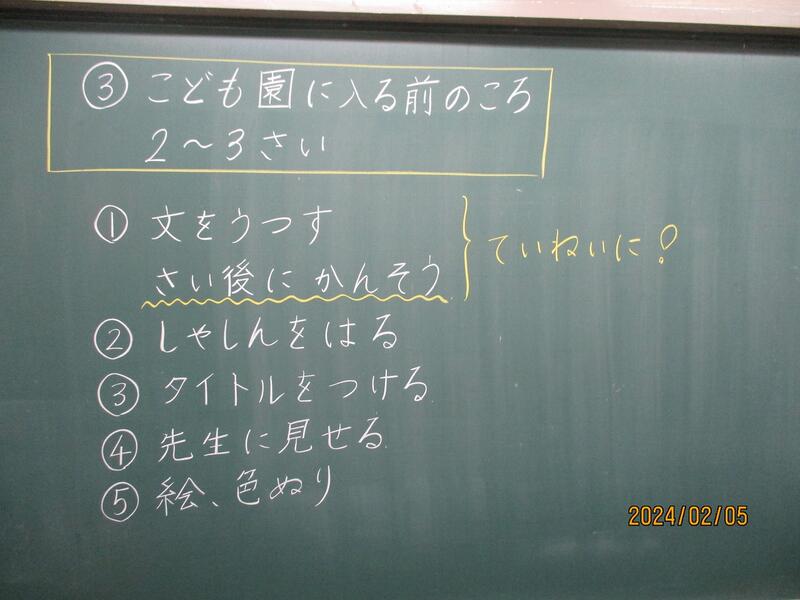 ③ こども園に入る前のころ
2～3さい
① 文をうつす
さい後にかんそう
ていねいに！
② しゃしんをはる
③ タイトルをつける
④ 先生に見せる
⑤ 絵、色ぬり
2024/02/05